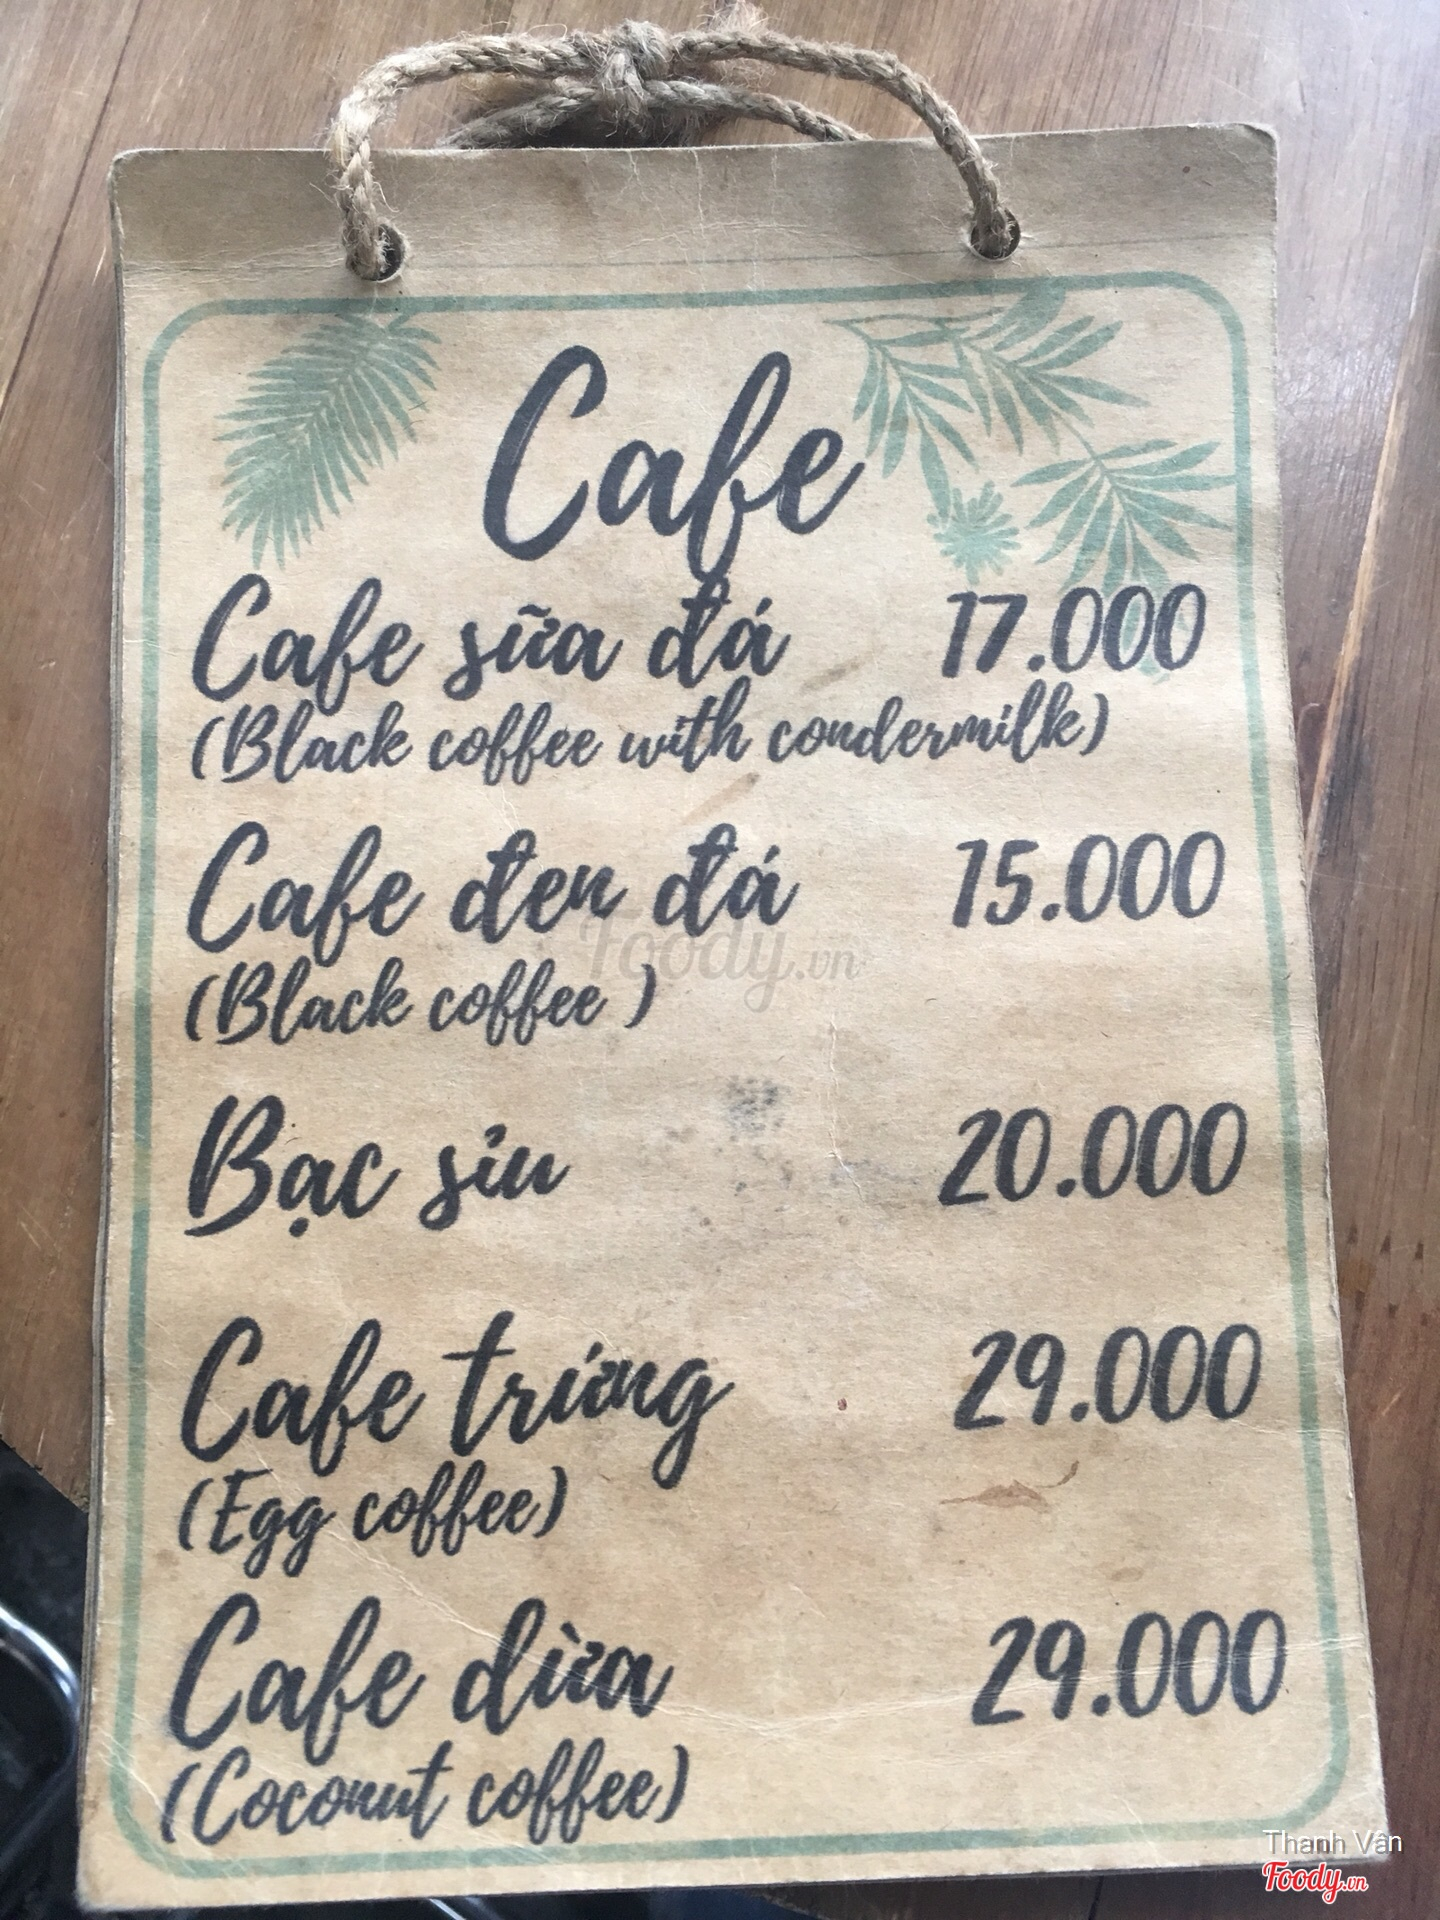 Cafe
Cafe sữa đá 17.000
(Black coffee with condermilk)
Cafe đen đá 15.000
Foody.vn
(Black coffee )
Bạc sỉu 20.000
Cafe trứng 29.000
(Egg coffee)
Cafe dừa 29.000
(Coconut coffee)
Thanh Vân
Foody.vn